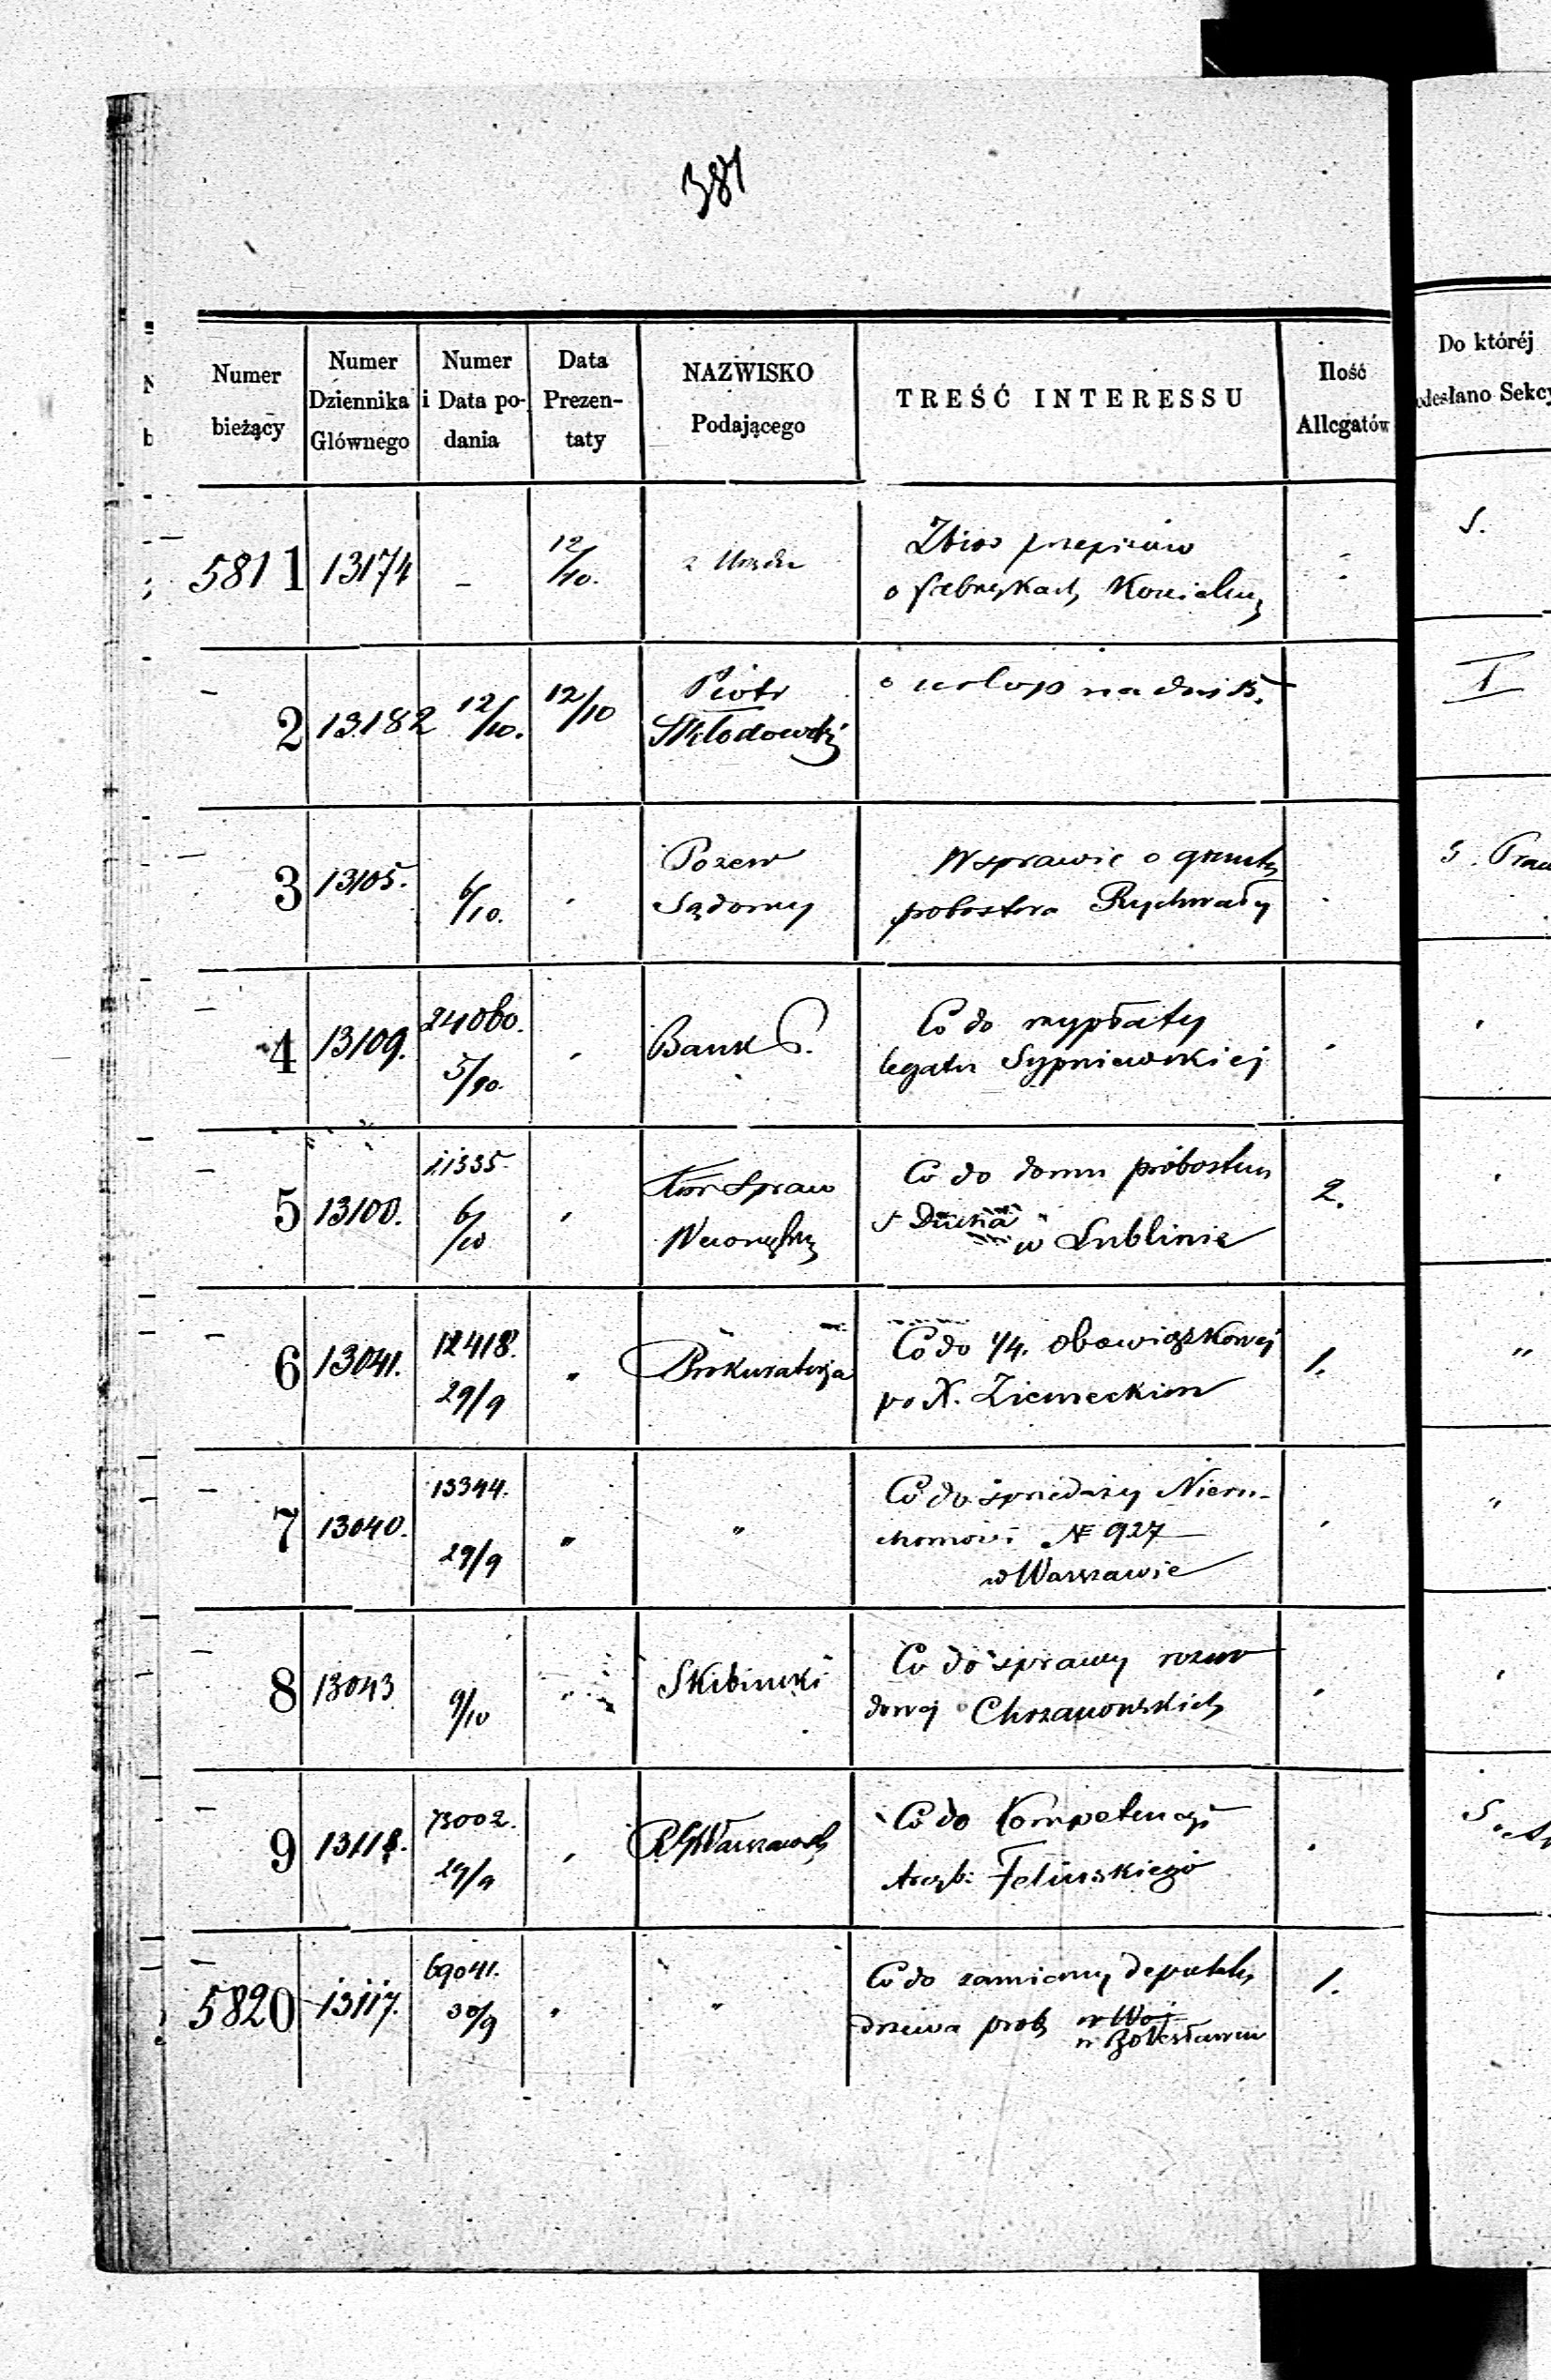 381
Numer bieżący | Numer Dziennika Głównego | Numer i Data podania | Data Prezentaty | NAZWISKO Podającego | TREŚĆ INTERESSU | Ilość Allegatów | Do któréj odesłano Sekcy
5811 | 13174 | - | 12/10. | z Urzędu | Zbior przepisów
o fabrykach Kościelny | S.
2 | 13182 | 12/10. | 12/10 | Piotr
Skłodowski | o urlop na dni 15. | I
3 | 13105. | 6/10. | Pozew
Sądowy | W sprawie o grunta
probostwa Rychwały | S. Praw
4 | 13109. | 24060.
5/10. | Bank P. | Co do wypłaty
legatu Sypniewskiej
5 | 13100. | 11335.
6/10 | Kom Spraw
Wewnętrz | Co do domu probostwa
S Ducha
w Lublinie | 2.
6 | 13041. | 12418.
29/9 | " | Prokuratorja | Co do 1/4. obowiązkowej
po X. Ziemeckim | 1. | "
7 | 13040. | 13344.
29/9 | " | " | Co do sprzedaży Nieru-
chomości № 927
w Warszawie | "
8 | 13043 | 9/10 | " | Skibiński | Co do sprawy rozwo
dowej Chrzanowskich
9 | 13118. | 73002.
29/9 | R G Warszawsk | Co do Kompetencyi
Arcyb: Felińskiego
5820 | 13117. | 69041.
30/9 | " | " | Co do zamiany deputatu
drzewa prob w Woj
w Bolesławiu | 1.